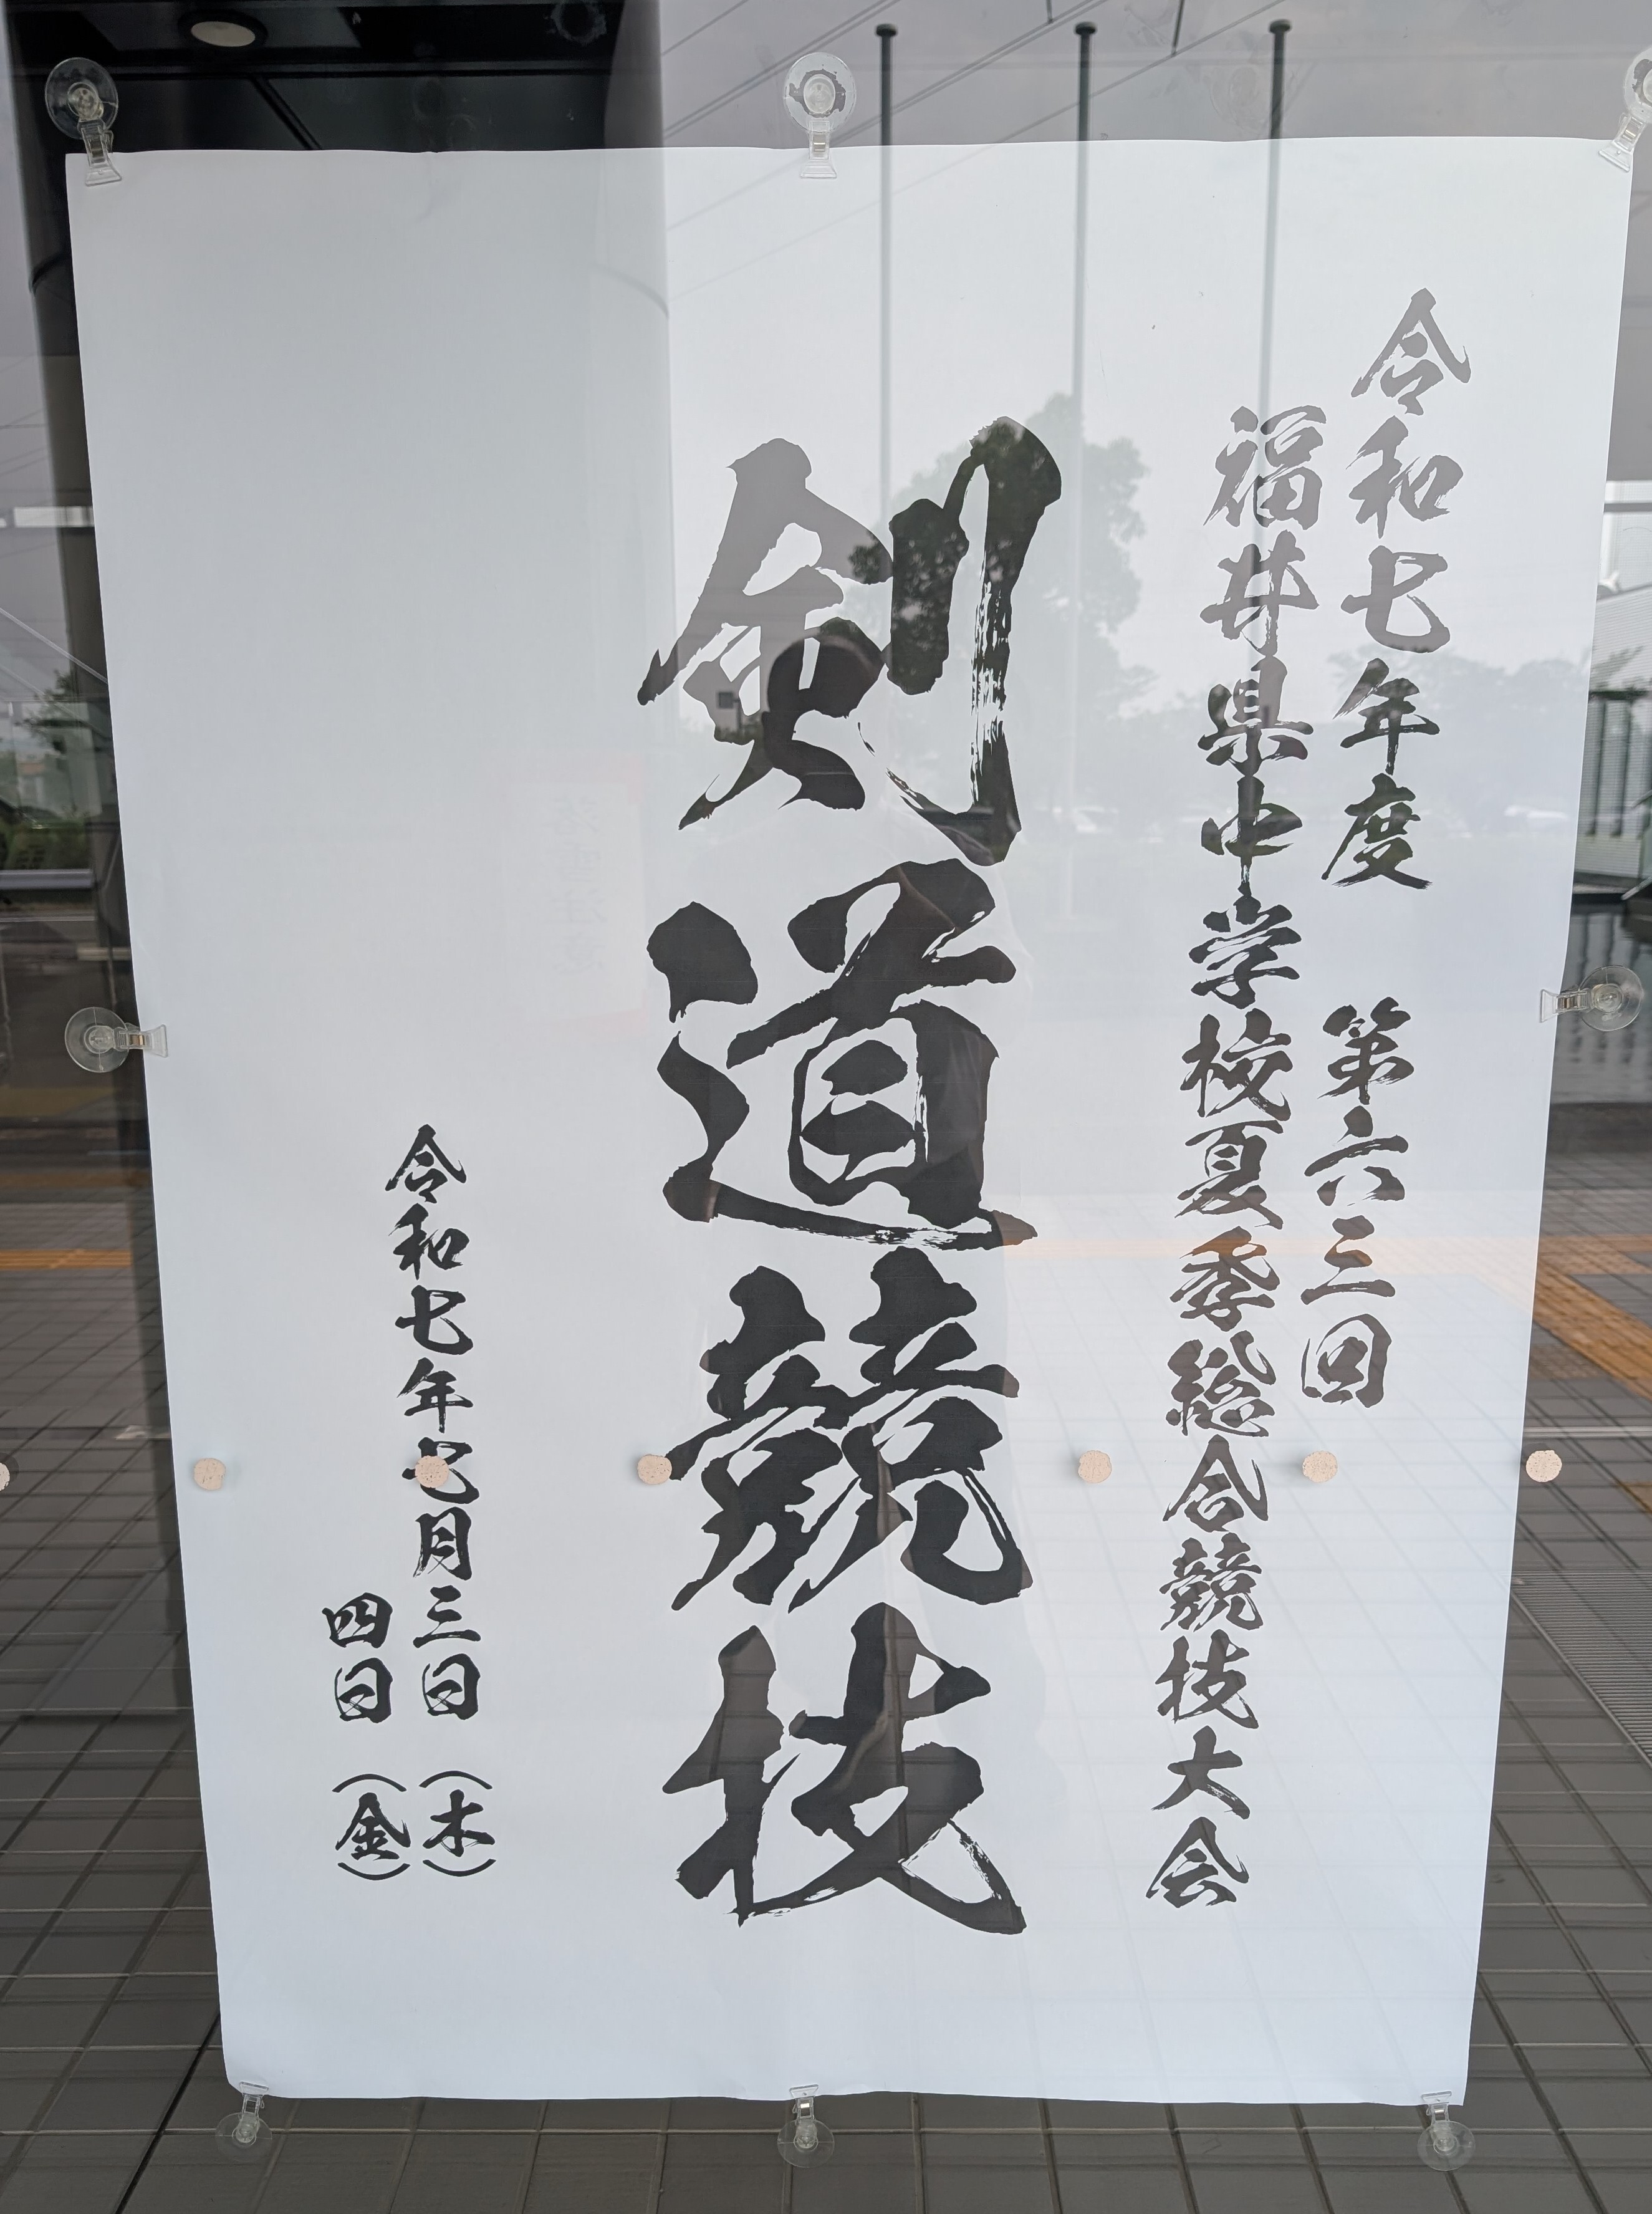 令和七年度　第六三回
福井県中学校夏季総合競技大会
剣道競技
令和七年七月三日（木）
四日（金）